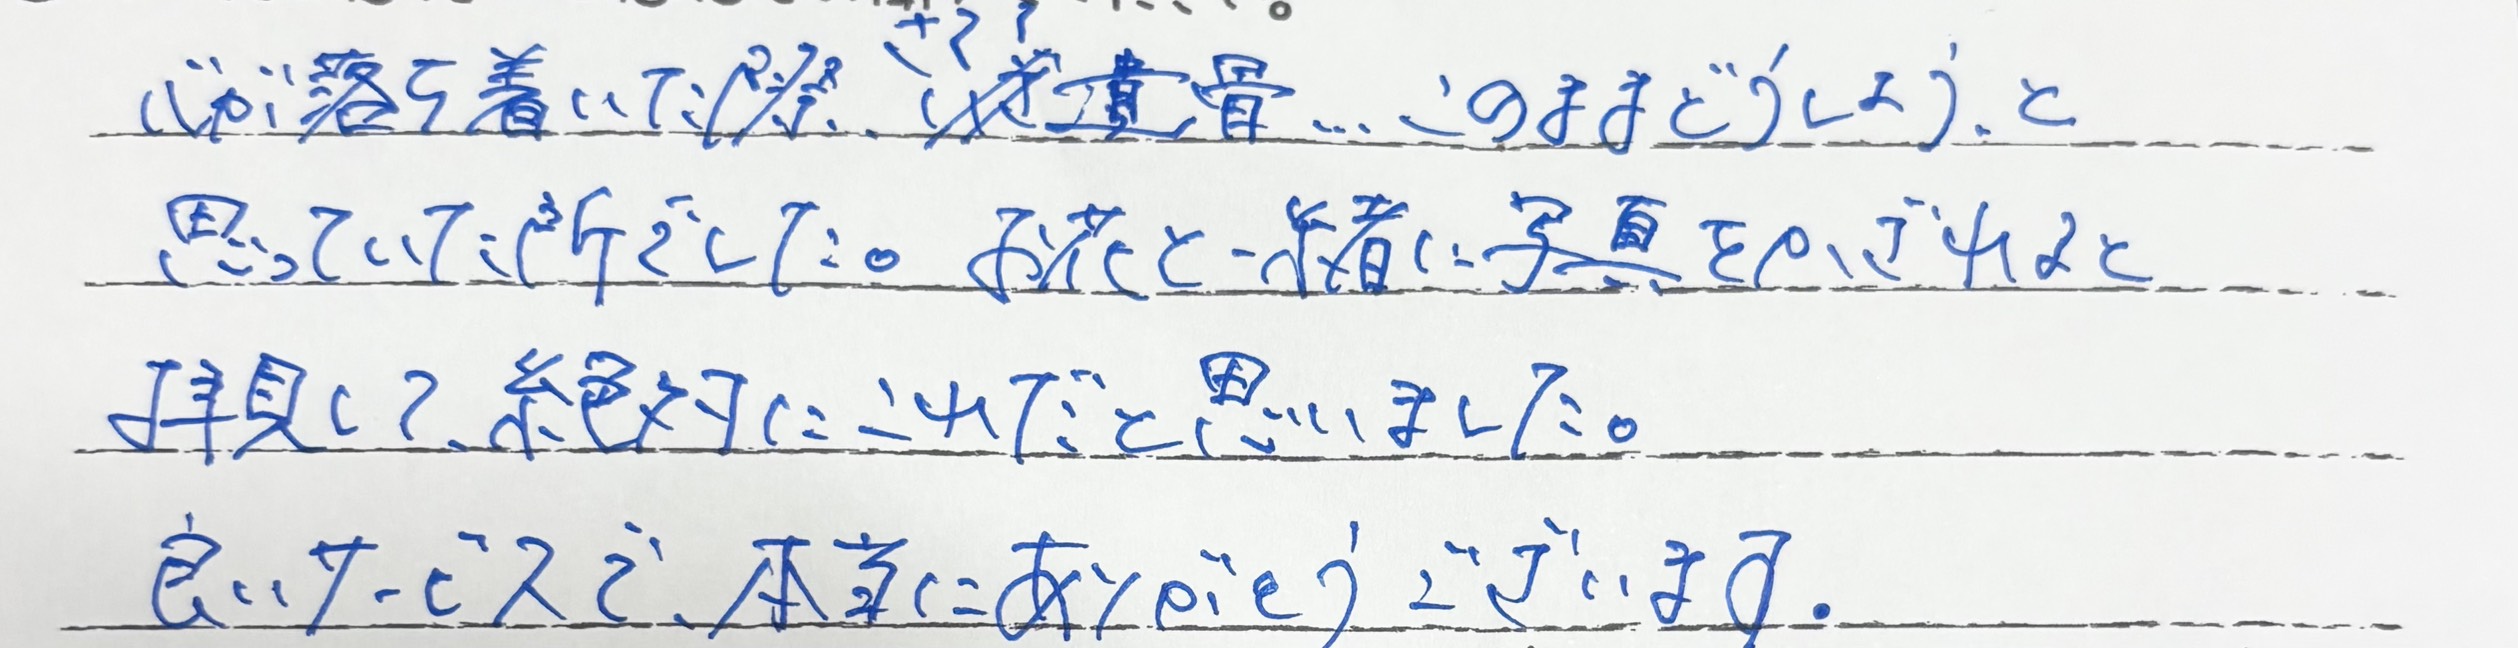 心が落ち着いた際、さて?遺骨…このままどうしよう、と
思っていた所でした。お花と一緒に写真をかざれると
拝見して、絶対にこれだと思いました。
良いサービスで、本当にありがとうございます。